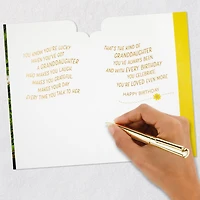 YOU KNOW YOU'RE LUCKY
WHEN YOU'VE GOT
A GRANDDAUGHTER
WHO MAKES YOU LAUGH,
MAKES YOU GRATEFUL,
MAKES YOUR DAY
EVERY TIME YOU TALK TO HER.
THAT'S THE KIND OF
GRANDDAUGHTER
YOU'VE ALWAYS BEEN,
AND WITH EVERY BIRTHDAY
YOU CELEBRATE,
YOU'RE LOVED EVEN MORE.
HAPPY BIRTHDAY